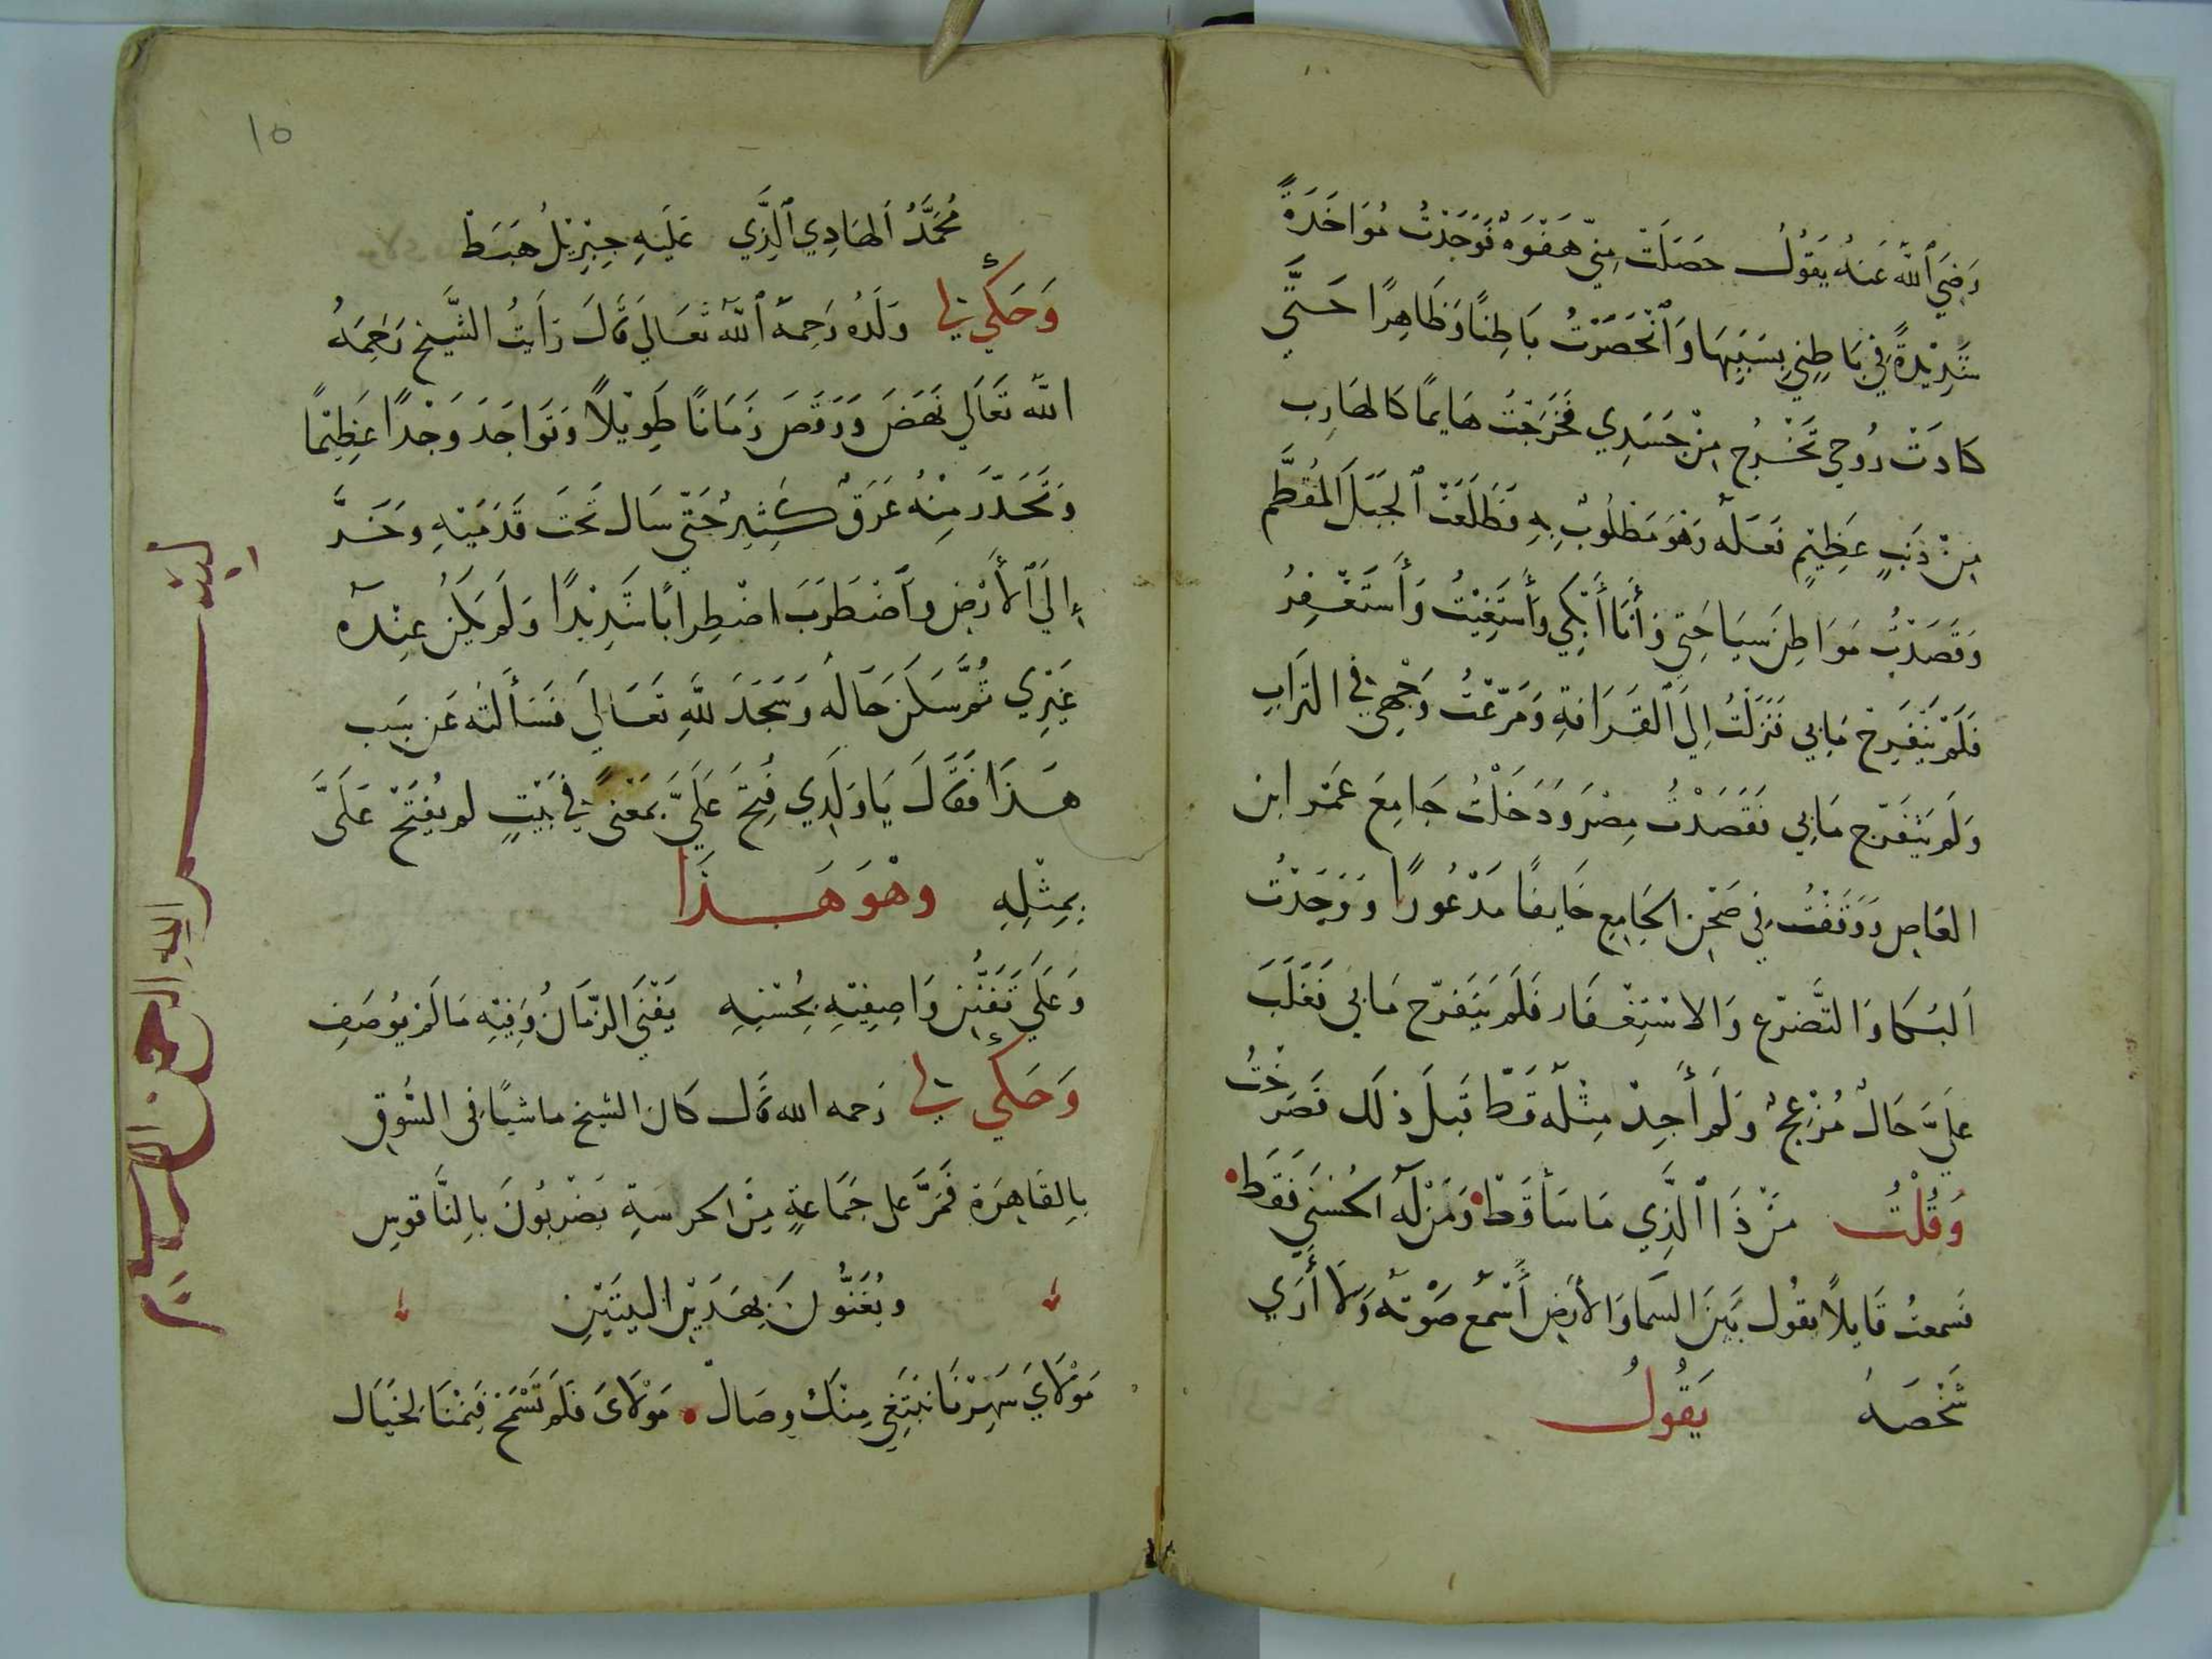 رَضِيَ ٱللَّه عَنهُ يَقوُلُ حصَلَتْ مِنّي هَفْوَهٌ فَوَجَدْتُ مُوَاخَذَةً
شَدِيْدةً فِي بَاطِنِي بِسَبَبِهَا وَٱنْحَصَرْتُ بَاطِنًا وَظَاهِرًا حَتَّي
كادَتْ رُوحِي تَخْرُج مِنْ جَسَدِي فَخَرَجْتُ هَايمًا كالهَارِب
مِنْ ذَنبٍ عَظِيْمٍ فعَلَه وَهْوَ مَطْلُوبٌ بِهِ فَطَلَعْتُ ٱلجَبَلَ المُقَطَّم
وَقَصَدْتُ مَوَاطِنَ سِيَاحَتِي وَأَنَا أَبْكِي وَأَسْتَغِيْتُ وَأَسْتَغْفِرُ
فَلَمْ يَنْفَرِجْ مَابِي فَنَزَلْتُ اِلَي ٱلقَرَافَةِ وَمَرَّغْتُ وَجْهِي فِي التُرَابِ
وَلَم يَنْفَرِج مَابِي فَقَصَدْتُ مِصْرَ وَدَخَلْتُ جَامِعَ عَمْرِ ابن
العَاصِ وَوَقَفْتُ فِي صَحْنِ الجَامِعِ خَايفًا مَذْعُورًا وَوَجَدْتُ
اَلبُكَا وَالتَّضَرّع وَالاسْتِغْفَار فَلَم يَنْفَرِج مَابِي فَغَلَبَ
عَلَيَّ حَالٌ مُزْعِجٌ وَلَم أَجِدْ مِثْلَه قَطّ قَبلَ ذلَك فَصَرَخْتُ
وَقُلْتُ مَنْ ذَا ٱلَّذِي مَا سَأَ قَطْ وَمَنْ لَه الحُسْنَي فَقَطْ
فسَمعتُ قَايِلاً يقُول بَيْنَ السَّمَا وَالأرَضِ أَسْمَع صَوْتَه وَلاَ أَرَي
شَخْصَهُ يَقُولُ
١٥
مُحَمَّدُ الهَادِي ٱلَّذِي عَلَيْهِ جِبْرِيْلُ هَبَطْ
وَحَكَي لِي وَلَدُه رَحِمهُ ٱللّه تَعَالَي قَالَ رَأَيتُ الشَّيْخ رَحِمَهُ
اللّه تَعَالَي نَهَضَ وَرَقَصَ زَمَانًا طَوِيْلاً وَتَوَاجَدَ وَجْدًا عَظِيْمًا
وَتَحَدّرَ مِنْهُ عَرَقٌ كَثِيرٌ حَتّي سَال تَحْتَ قَدَمَيْهِ وَخَرَّ
إِلَي ٱلأَرْضِ وَٱضْطَرَبَ اضْطِرابًا شَدِيْدًا وَلَم يَكُنْ عِنْدَه
غَيْرِي ثُمَّ سَكَنَ حَالُه وَسَجَدَ لِلَّهِ تَعَالَي فَسَأَلتُه عَن سَبَب
هَذَا فَقَالَ يَا وَلَدِي فُتِحَ عَلَيَّ بِمَعْنًي فِي بَيْتٍ لم يُفْتَحْ عَلَيَّ
بِمِثْلِهِ وهْوَ هَذَا
وَعَلَي تَفَنُّنِ وَاصِفِيْهِ بِحُسْنِهِ يَفْنَي الزَّمَانُ وَفِيْهِ مَا لَمْ يُوصَفِ
وَحَكَي لِي رَحمه الله قَال كَانَ الشيخ ماشيًا فى السُّوقِ
بِالقَاهِرَةِ فَمَرَّ على جَمَاعَةٍ مِنَ الحرسَةِ يَضْرِبُونَ بِالنَّاقوسِ
ويُغَنُّونَ بِهَذَيْنِ البيتَيْنِ
مَوْلاَيَ سَهِرْنَا نَبْتَغِي مِنْكَ وِصَالْ مَوْلاَيَ فَلَم تَسْمَحْ فَنِمْنَا بِخَيَال
بسم الله الرحمن الرحيم